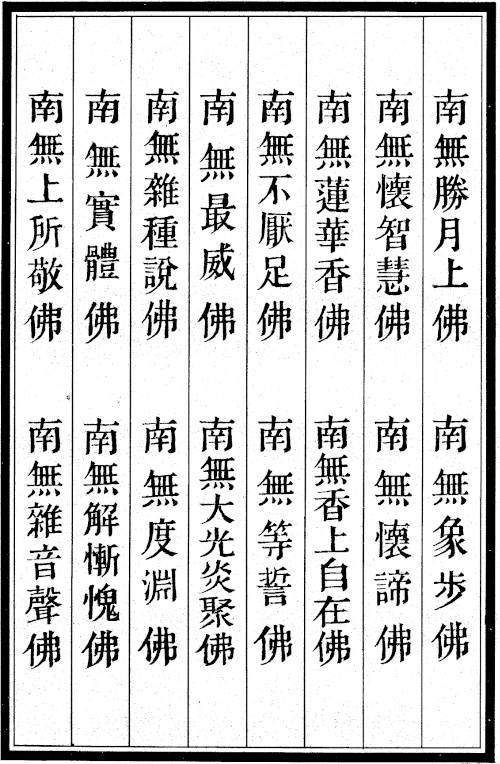 南無勝月上佛　南無象步佛
南無懷智慧佛　南無懷諦佛
南無蓮華香佛　南無香上自在佛
南無不厭足佛　南無等誓佛
南無最威佛　南無大光炎聚佛
南無雜種說佛　南無度淵佛
南無實體佛　南無解慚愧佛
南無上所敬佛　南無雜音聲佛